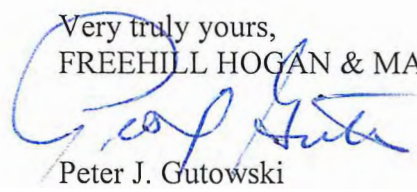 Very truly yours,
FREEHILL HOGAN & MA
Peter J. Gutowski